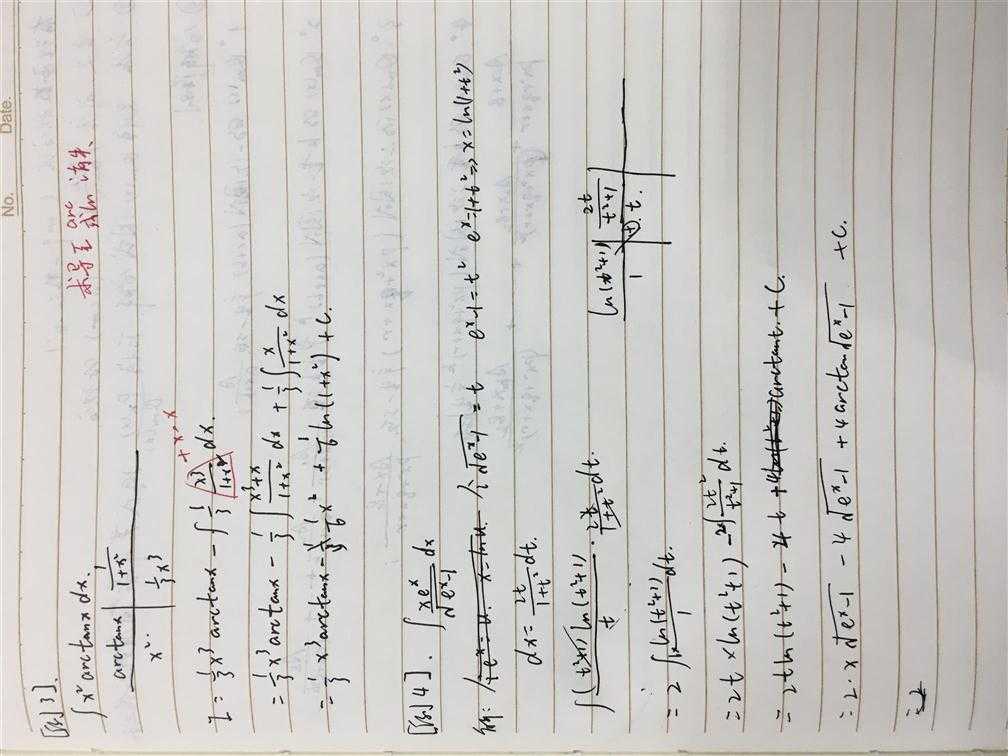 No. Date.
求导至 arc 或ln 消失、
[例3].
∫x²arctanx dx.
arctanx | 1/(1+x²)
x² | ⅓x³
I = ⅓x³arctanx - ∫⅓ x³/(1+x²) dx. +x-x
= ⅓x³arctanx - ⅓∫(x³+x)/(1+x²) dx + ⅓∫x/(1+x²) dx
= ⅓x³arctanx - ⅙x² + ⅙ln(1+x²) + C.
[例4]. ∫xeˣ/√(eˣ-1) dx
解: √(eˣ-1) = t eˣ-1=t² eˣ=1+t² => x=ln(1+t²)
dx = 2t/(1+t²) dt.
∫(t²+1)ln(t²+1)/t · 2t/(1+t²) dt.
ln(t²+1) | 2t/(t²+1)
1 | t.
= 2∫ln(t²+1)/1 dt.
= 2t×ln(t²+1) - 2∫2t²/(t²+1) dt.
= 2tln(t²+1) - 4t + 4arctant. + C.
= 2·x√(eˣ-1) - 4√(eˣ-1) + 4arctan√(eˣ-1) + C.